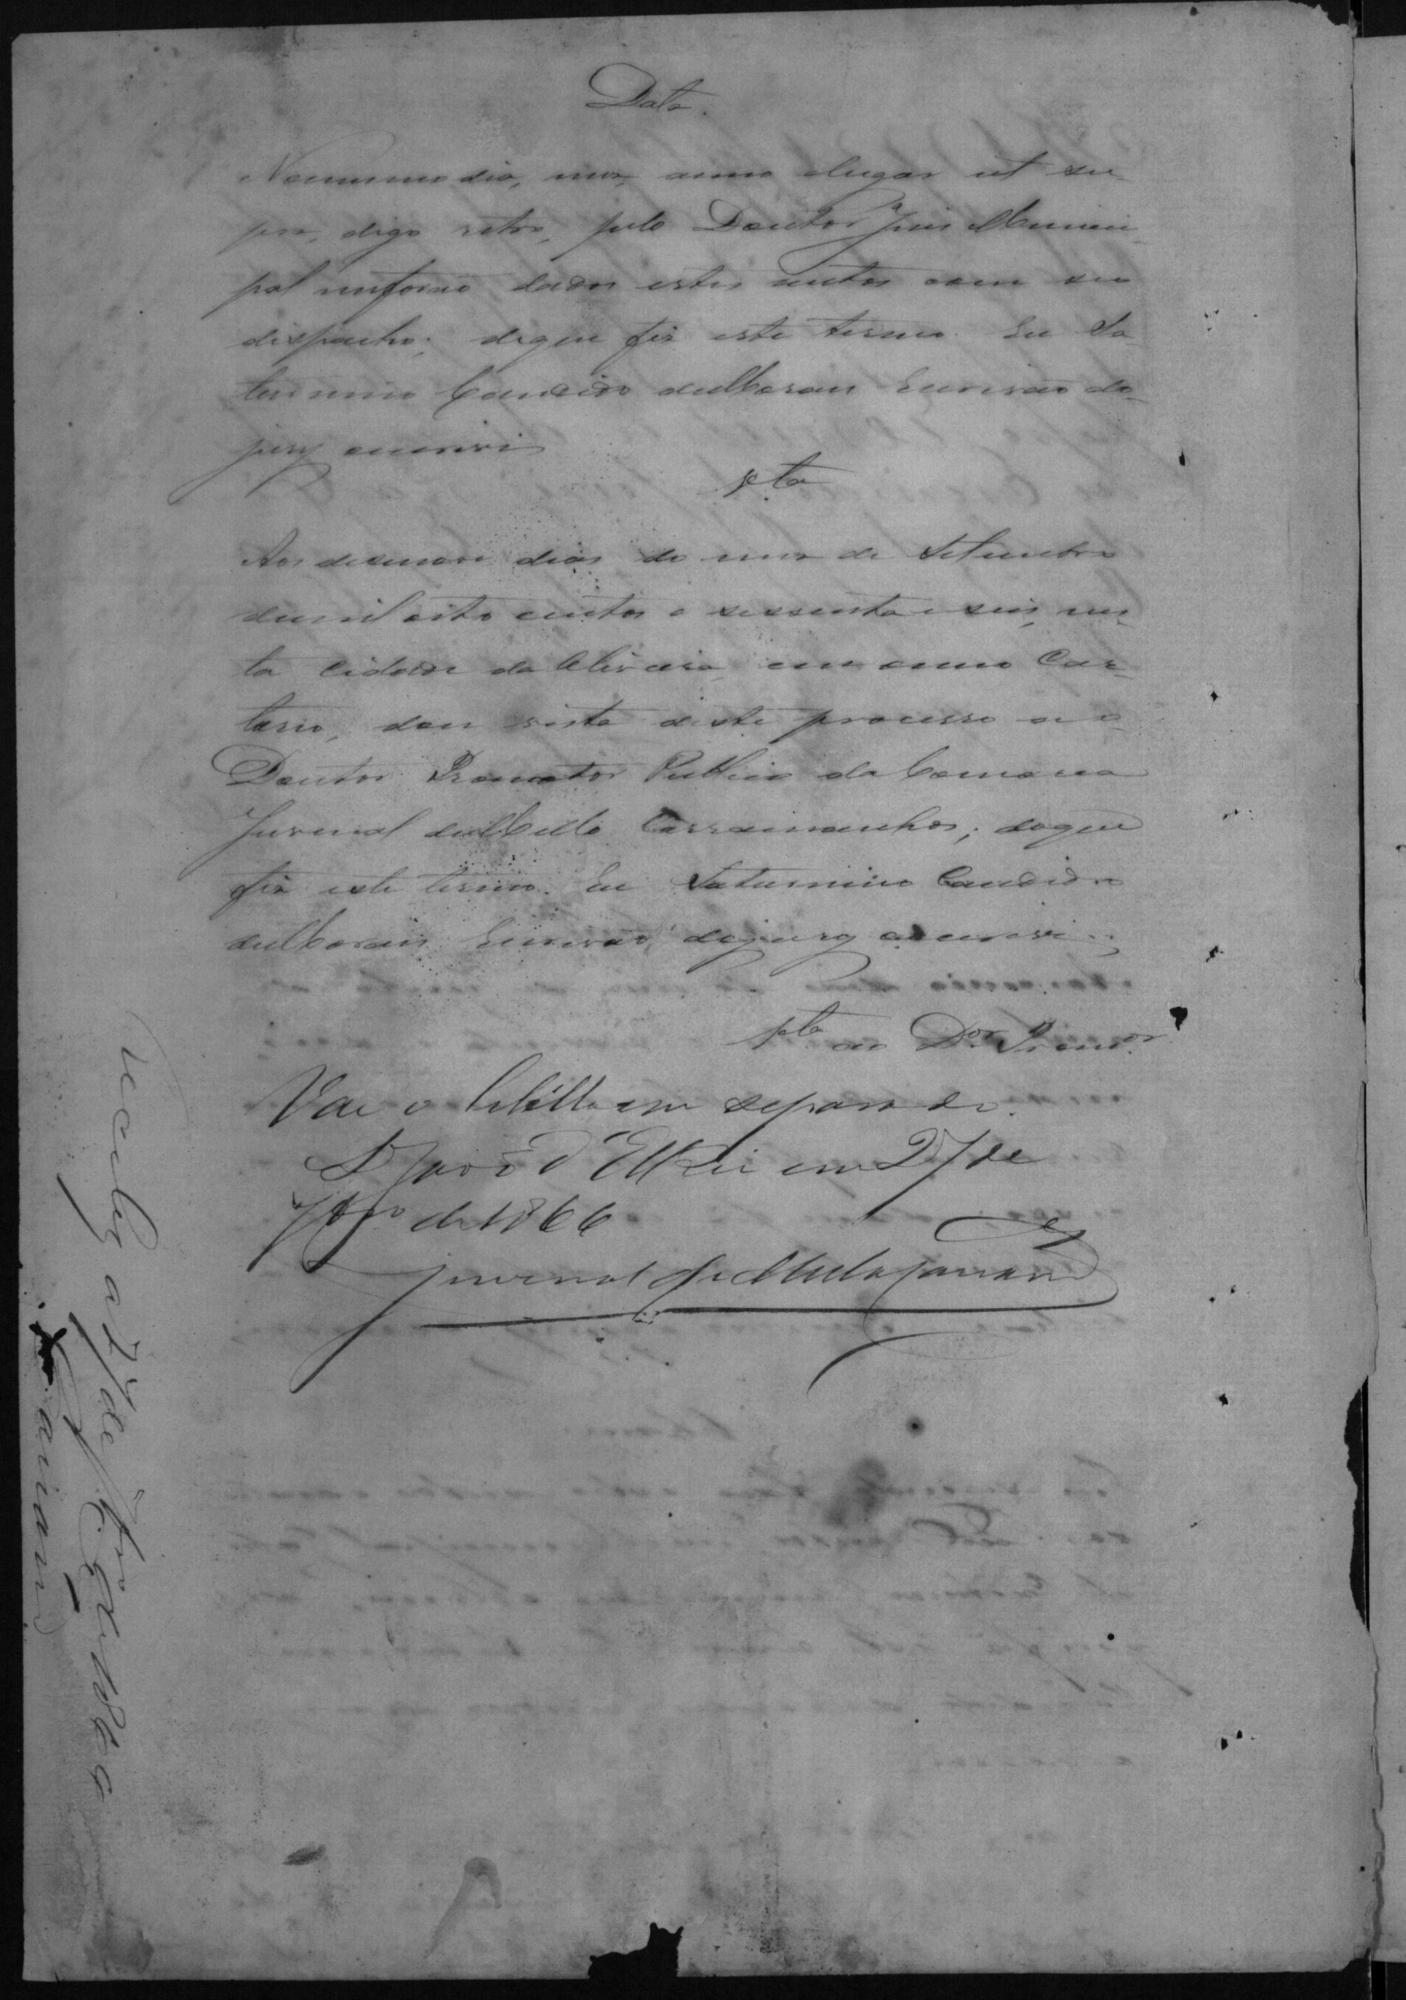 Data.
No mesmo dia, mez, anno e lugar ut su-
pra, digo retro, pelo Doutor Juis Munici-
pal me forão dados estes autos com seu
despacho; de que fiz este termo. Eu Sa-
turnino Candido de Moraes Escrivão do
jury escrevi
Vta
Aos desenove dias do mez de Setembro
de mil oito centos e sessenta e seis, nes-
ta cidade da Oliveira em meu Car-
torio, dou vista deste processo ao
Doutor Promotor Publico da Comarca
Juvenal de Mello Carramanhos; do que
fiz este termo. Eu Saturnino Candido
de Moraes Escrivão do jury escrevi.
Vta ao Dor. Promor.
Vae o libello em separado.
S. João d'El Rei em 27 de
7bro de 1866
Juvenal de Mello Carram
de 1866